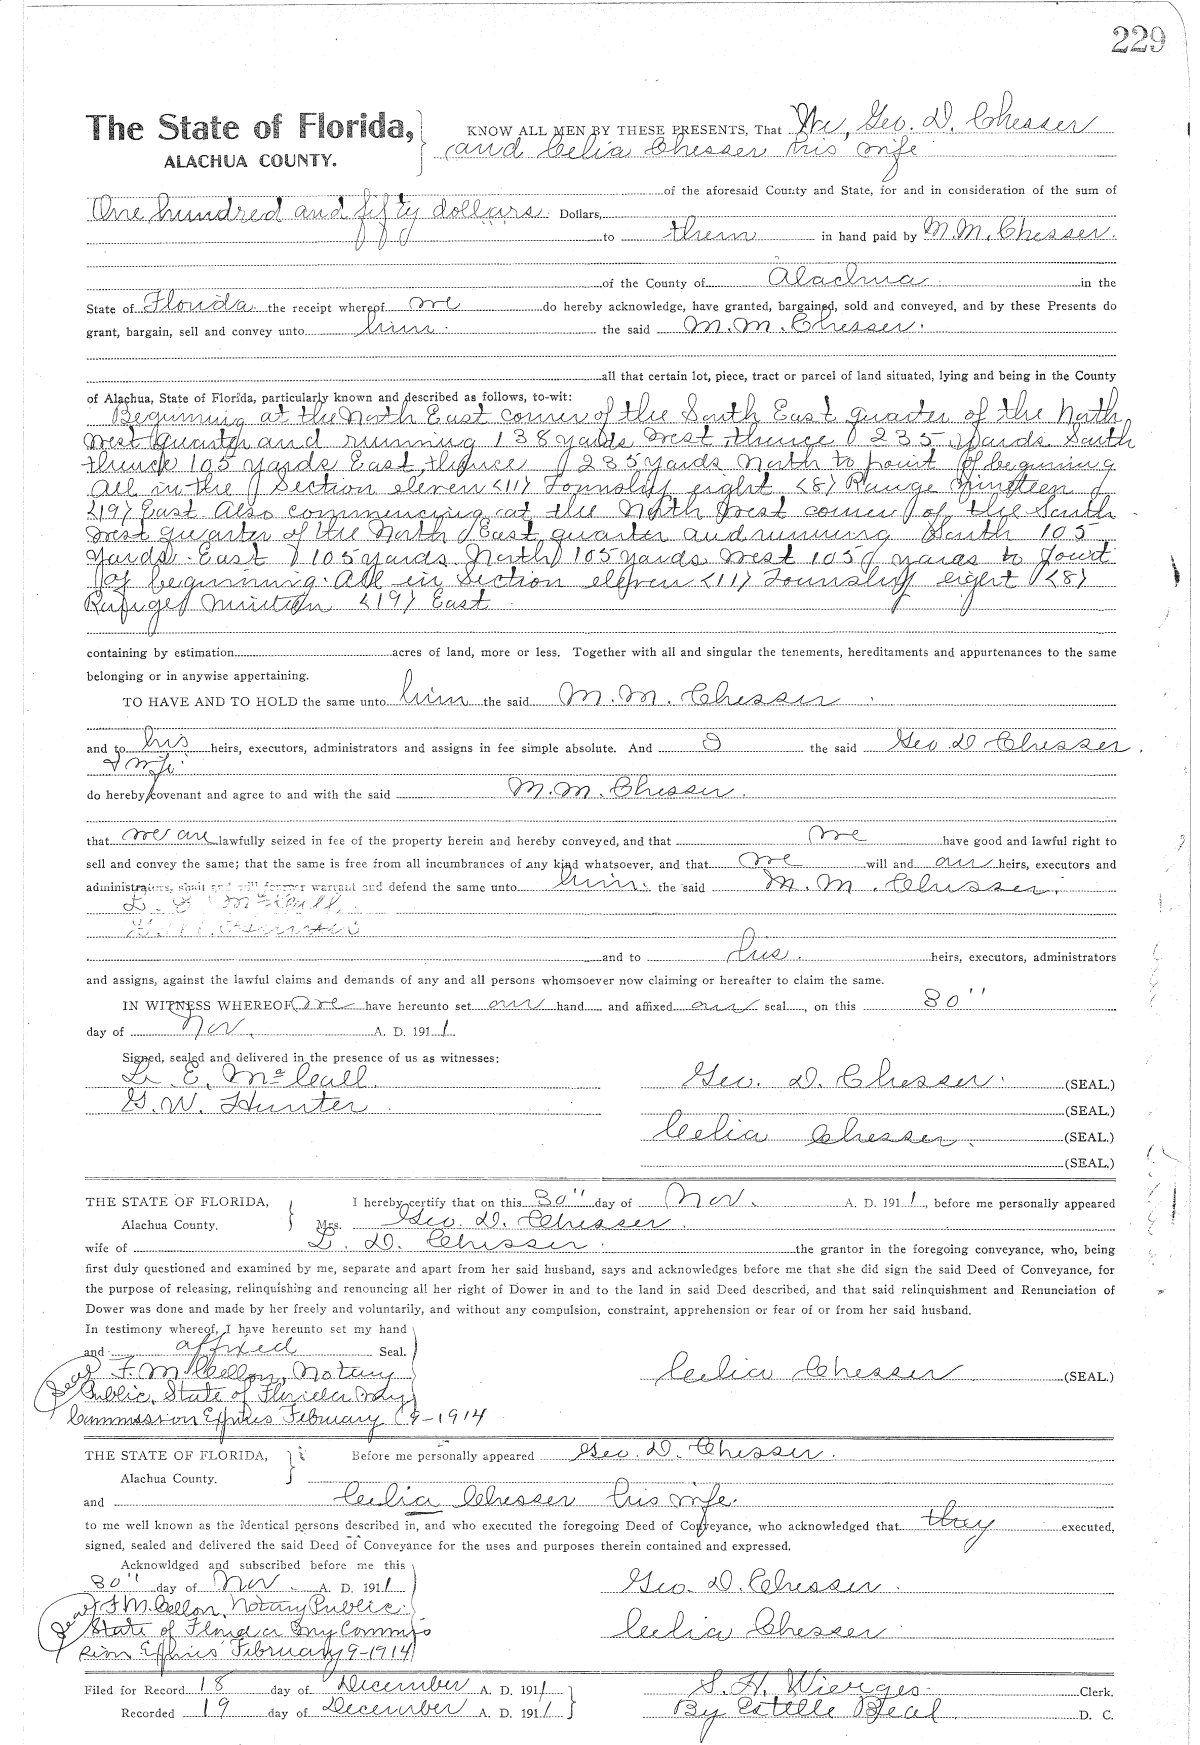 229
The State of Florida,
ALACHUA COUNTY.
KNOW ALL MEN BY THESE PRESENTS, That We, Geo. D. Chesser
and Celia Chesser his wife
of the aforesaid County and State, for and in consideration of the sum of
One hundred and fifty dollars Dollars,
to them in hand paid by M. M. Chesser.
of the County of Alachua in the
State of Florida the receipt whereof we do hereby acknowledge, have granted, bargained, sold and conveyed, and by these Presents do
grant, bargain, sell and convey unto him the said M. M. Chesser.
all that certain lot, piece, tract or parcel of land situated, lying and being in the County
of Alachua, State of Florida, particularly known and described as follows, to-wit:
Beginning at the North East corner of the South East quarter of the North
West quarter and running 138 yards West thence 235 yards South
thence 105 yards East, thence 235 yards North to point of beginning
All in the Section eleven <11> Township eight <8> Range Nineteen
<19> East Also commencing at the North West corner of the South
West quarter of the North East quarter and running South 105
yards East 105 yards North 105 yards West 105 yards to
of beginning. All in Section eleven <11> Township eight <8>
<19> East
containing by estimation acres of land, more or less. Together with all and singular the tenements, hereditaments and appurtenances to the same
belonging or in anywise appertaining.
TO HAVE AND TO HOLD the same unto him the said M. M. Chesser.
and to his heirs, executors, administrators and assigns in fee simple absolute. And I the said Geo D Chesser.
& wife
do hereby covenant and agree to and with the said M. M. Chesser.
that we are lawfully seized in fee of the property herein and hereby conveyed, and that we have good and lawful right to
sell and convey the same; that the same is free from all incumbrances of any kind whatsoever, and that we will and our heirs, executors and
administrators, shall and will forever warrant and defend the same unto him the said M. M. Chesser.
L. E. McCall
and to his heirs, executors, administrators
and assigns, against the lawful claims and demands of any and all persons whomsoever now claiming or hereafter to claim the same.
IN WITNESS WHEREOF, we have hereunto set our hand and affixed our seal, on this 30"
day of Nov. A. D. 1911.
Signed, sealed and delivered in the presence of us as witnesses:
L. E. McCall
Geo. D. Chesser. (SEAL.)
G. W. Hunter
(SEAL.)
Celia Chesser. (SEAL.)
(SEAL.)
THE STATE OF FLORIDA, I hereby certify that on this 30" day of Nov. A. D. 1911, before me personally appeared
Alachua County. Mrs. Geo. D. Chesser.
wife of L. D. Chesser. the grantor in the foregoing conveyance, who, being
first duly questioned and examined by me, separate and apart from her said husband, says and acknowledges before me that she did sign the said Deed of Conveyance, for
the purpose of releasing, relinquishing and renouncing all her right of Dower in and to the land in said Deed described, and that said relinquishment and Renunciation of
Dower was done and made by her freely and voluntarily, and without any compulsion, constraint, apprehension or fear of or from her said husband.
In testimony whereof, I have hereunto set my hand
and affixed Seal.
Seal F. M. Cellon, Notary
Celia Chesser (SEAL.)
Public, State of Florida My
Commission Expires February 9-1914
THE STATE OF FLORIDA, Before me personally appeared Geo. D. Chesser.
Alachua County.
and Celia Chesser his wife.
to me well known as the identical persons described in, and who executed the foregoing Deed of Conveyance, who acknowledged that they executed,
signed, sealed and delivered the said Deed of Conveyance for the uses and purposes therein contained and expressed.
Acknowldged and subscribed before me this
30" day of Nov. A. D. 1911
Geo. D. Chesser.
Seal F. M. Cellon, Notary Public.
State of Florida My Commis
Celia Chesser
sion Expires February 9-1914
Filed for Record 18 day of December A. D. 1911
S. H. Wienges Clerk.
Recorded 19 day of December A. D. 1911
By Estelle Beal D. C.